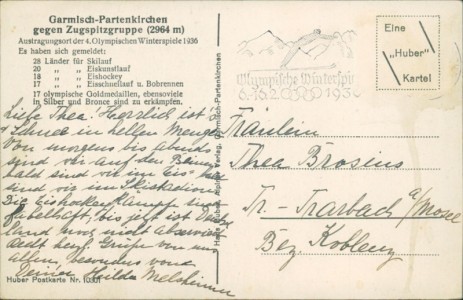 Garmisch-Partenkirchen
gegen Zugspitzgruppe (2964 m)
Austragungsort der 4. Olympischen Winterspiele 1936
Es haben sich gemeldet:
28 Länder für Skilauf
20 „ „ Eiskunstlauf
18 „ „ Eishockey
17 „ „ Eisschnellauf u. Bobrennen
17 olympische Goldmedaillen, ebensoviele
in Silber und Bronce sind zu erkämpfen.
Liebe Thea! Herrlich ist es
Schnee in hellen Mengen
Von morgens bis abends
sind wir auf den Beinen
bald sind wir im Eis-
sind wir im Skistadion
Die Eishockeykämpfe sind
fabelhaft, bis jetzt ist Deutsch
land noch nicht
Recht herzl. Grüße von uns
allen, besonders von
Deiner Hilde
Huber Postkarte Nr.
Verlag, Garmisch-Partenkirchen
Olympische Winterspiele
6.-16.2. 1936
Eine
„Huber"
Kartel
Fräulein
Thea Brosius
Tr.-Trarbach a/Mosel
Bez. Koblenz